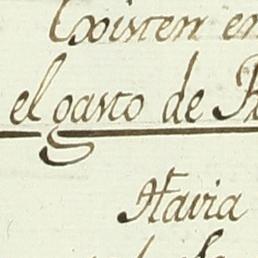 Existen en
el gasto de
Havia